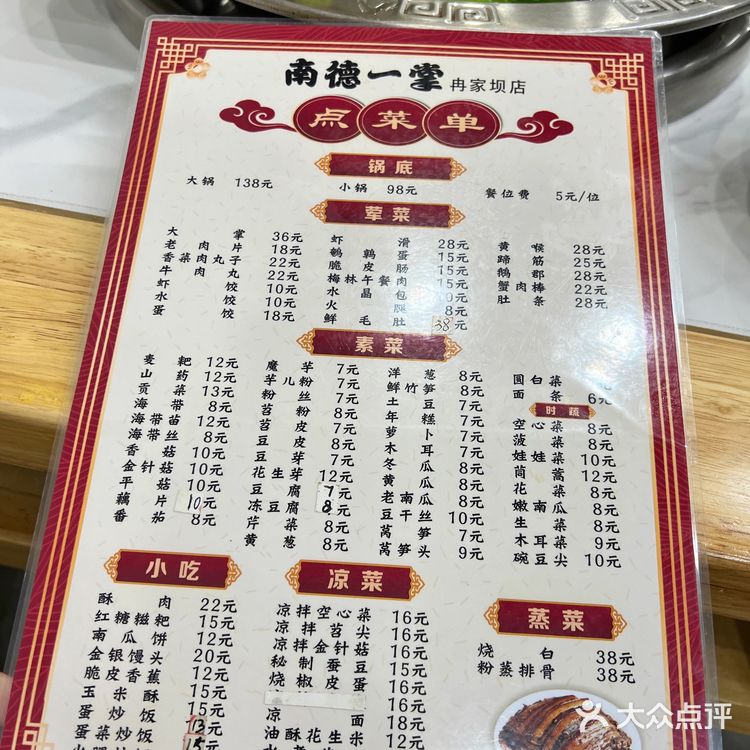 南德一掌 冉家坝店
点菜单
锅底
大锅 138元
小锅 98元
餐位费 5元/位
荤菜
大掌 36元
老肉片 18元
香菜肉丸子 22元
牛肉丸 22元
虾饺 10元
水饺 10元
蛋饺 18元
虾滑 28元
鹌鹑蛋 15元
脆皮肠 15元
梅林午餐肉 15元
水晶包 10元
火腿 8元
鲜毛肚 38元
黄喉 28元
蹄筋 25元
鹅郡 28元
蟹肉棒 22元
肚条 28元
素菜
麦粑 12元
山药 12元
贡菜 13元
海带 8元
海带苗 12元
海带丝 8元
香菇 10元
金针菇 10元
平菇 10元
藕片 10元
番茄 8元
魔芋 7元
芋儿 7元
粉丝 7元
苕粉
豆皮
豆芽
花生芽 12元
豆腐 7
冻豆腐 8
芹菜 8元
黄葱 8元
洋葱 8元
鲜笋 8元
土豆 7元
年糕 7元
萝卜 7元
木耳 8元
冬瓜 7元
黄瓜 8元
老南瓜 8元
豆干丝 10元
莴笋 7元
莴头 9元
圆白菜
面条 6元
时蔬
空心菜 8元
菠菜 8元
娃娃菜 10元
茼蒿 12元
花菜 8元
嫩南瓜 8元
生菜 8元
木耳菜 9元
豌豆尖 10元
小吃
酥肉 22元
红糖糍粑 15元
南瓜饼 12元
金银馒头 20元
脆皮香蕉 12元
玉米酥 15元
蛋炒饭 13元
凉菜
凉拌空心菜 16元
凉拌苕尖 16元
凉拌金针菇 16元
秘制蚕豆 15元
烧椒皮蛋 16元
凉面 10元
油酥花生米 18元
蒸菜
烧白 38元
粉蒸排骨 38元
大众点评